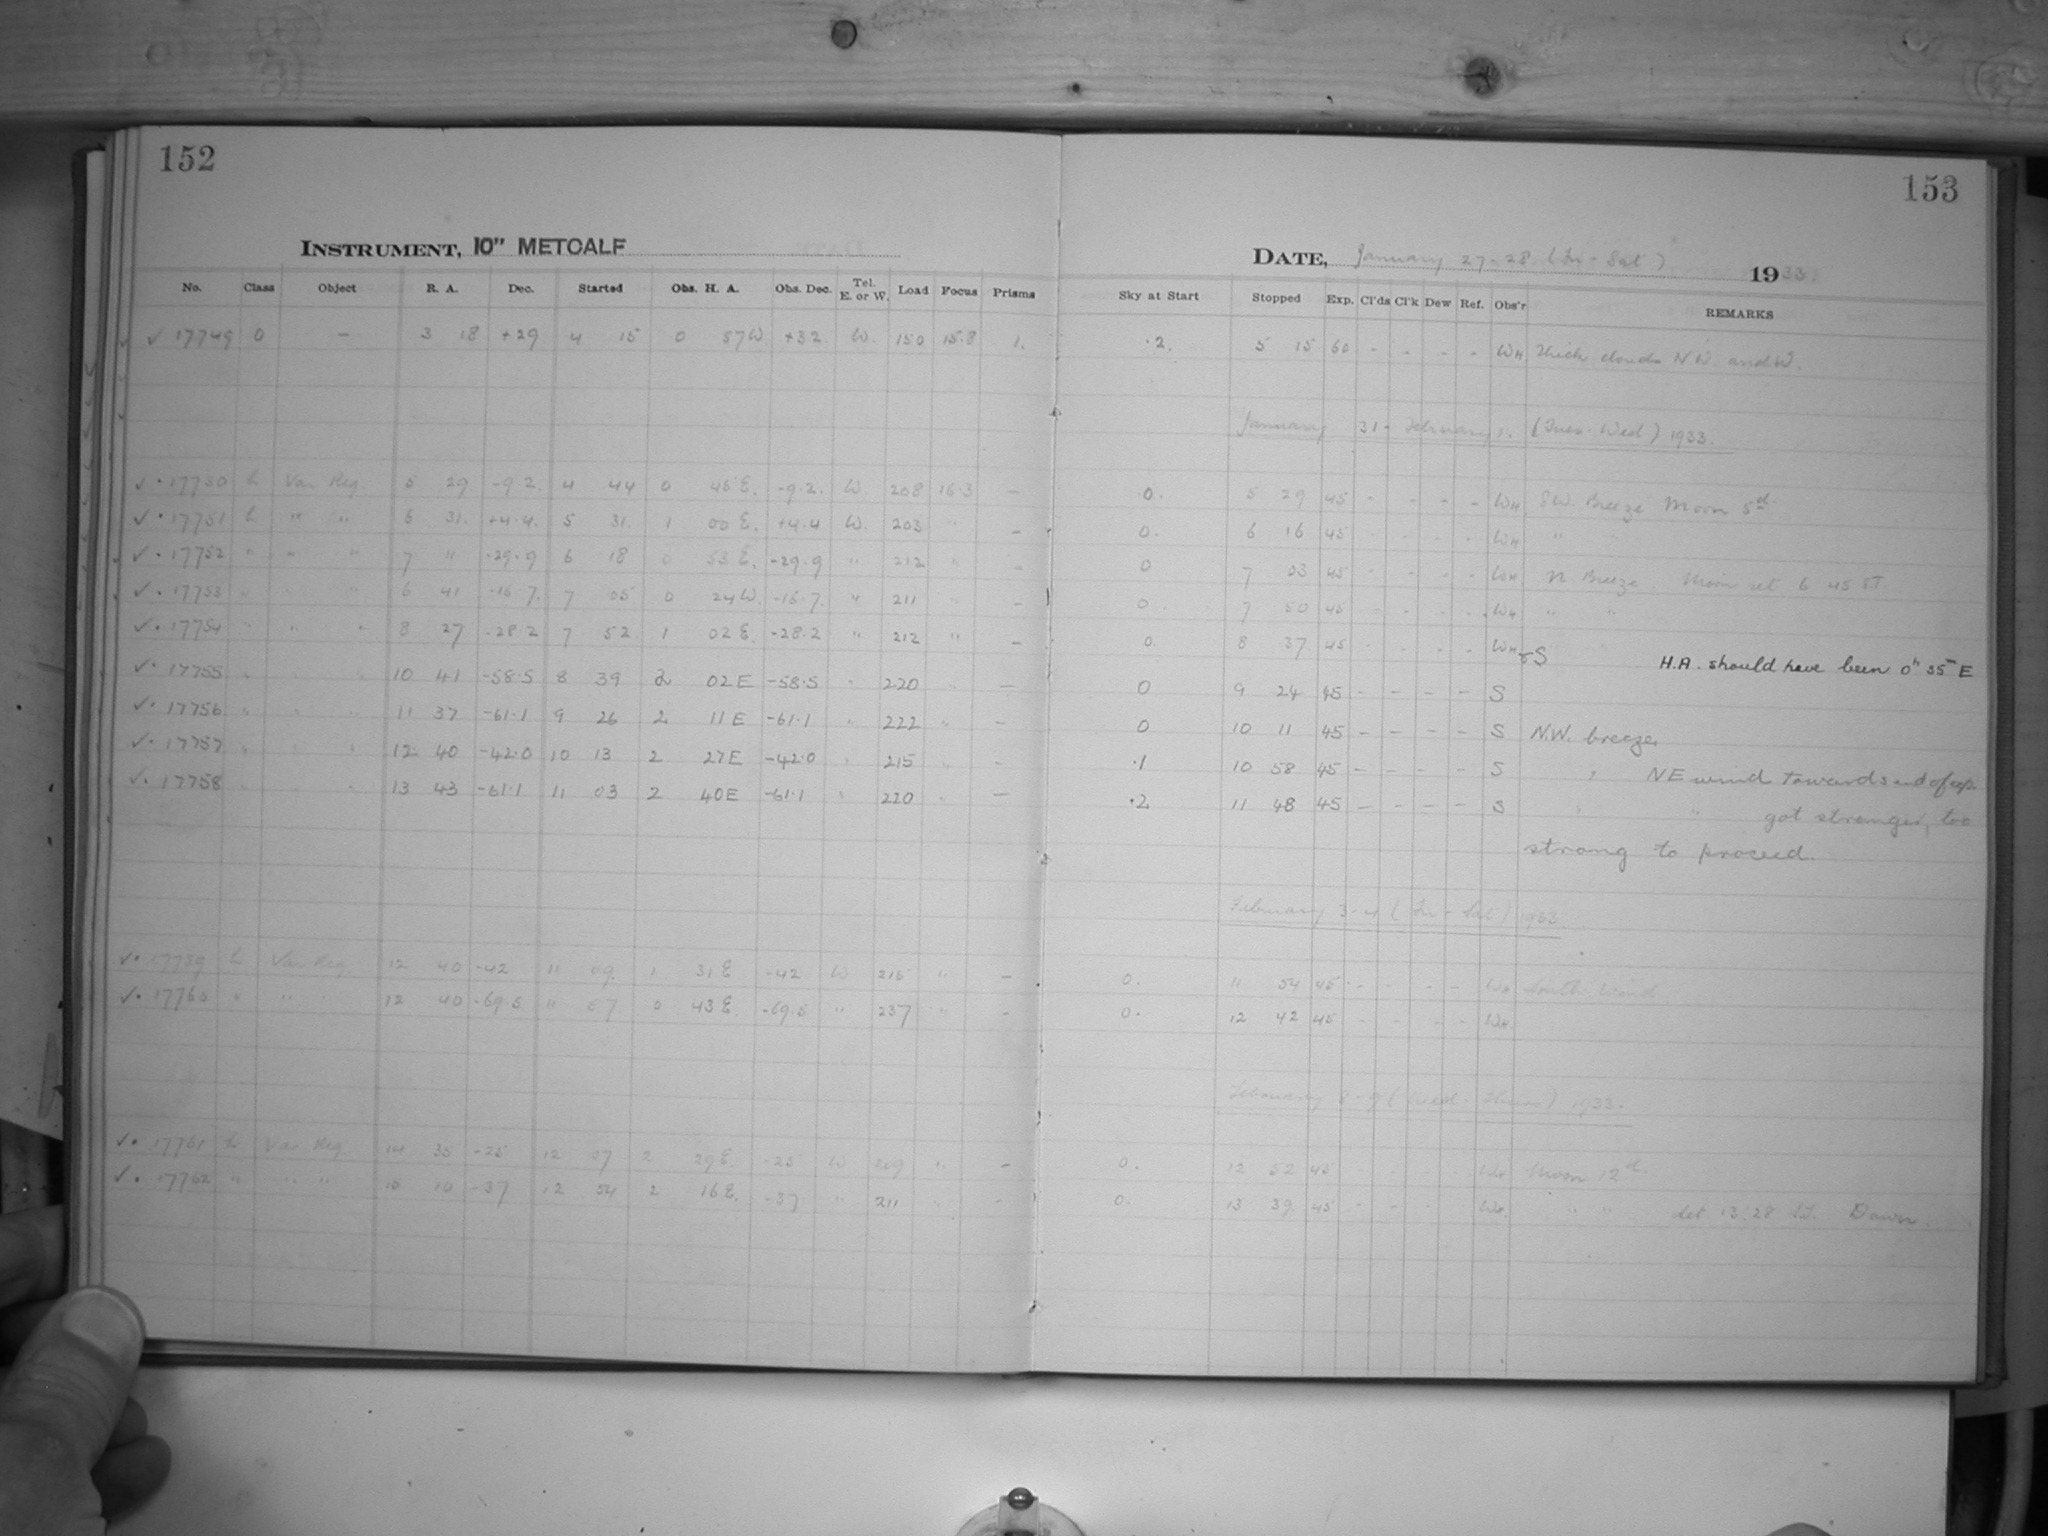 152
153
INSTRUMENT, 10" METCALF
DATE, January 27-28 (Fri - Sat) 1933.
No. Class Object R. A. Dec. Started Obs. H. A. Obs. Dec. Tel. E. or W. Load Focus Prisms Sky at Start Stopped Exp. Cl'ds Cl'k Dew Ref. Obs'r REMARKS
✓ 17749 0 — 3 18 +29 4 15 0 57W +32 W. 150 15.8 1. .2. 5 15 60 - - - - WH Thick clouds NW. and W.
January 31 - February 1. (Tues - Wed) 1933.
✓ · 17750 L Var Reg. 5 29 -9.2. 4 44 0 45 E. -9.2. W. 208 16.3 — 0. 5 29 45 - - - - WH SW. Breeze Moon 5d.
✓ · 17751 L " " 6 31. +4.4. 5 31. 1 00 E. +4.4 W. 203 " — 0. 6 16 45 - - - - WH " "
✓ · 17752 " " " 7 11 -29.9 6 18 0 53 E. -29.9 " 212 " - 0 7 03 45 - - - - WH N Breeze. Moon set 6 45 ST.
✓ · 17753 " " " 6 41 -16.7. 7 05 0 24W. -16.7. " 211 " — 0. 7 50 45 - - - - WH " "
✓ · 17754 " " " 8 27 -28.2 7 52 1 02 E. -28.2 " 212 " — 0. 8 37 45 - - - - WH & S H.A. should have been 0h 35m E
✓ · 17755 " " " 10 41 -58.5 8 39 2 02 E -58.5 " 220 " — 0 9 24 45 - - - - S
✓ · 17756 " " " 11 37 -61.1 9 26 2 11 E -61.1 " 222 " — 0 10 11 45 - - - - S N.W. breeze.
✓ · 17757 " " " 12 40 -42.0 10 13 2 27E -42.0 " 215 " - .1 10 58 45 - - - - S " NE wind towards end of exp.
✓ · 17758 " " 13 43 -61.1 11 03 2 40E -61.1 " 220 " — .2 11 48 45 - - - - S " " got stronger, too
strong to proceed.
February 3-4 (Fri - Sat) 1933.
✓ · 17759 L Var Reg. 12 40 -42 11 09 1 31 E -42 W 215 " — 0. 11 54 45 - - - - WH South Wind.
✓ · 17760 " " " 12 40 -69.5 11 57 0 43 E. -69.5 " 237 " - 0. 12 42 45 - - - - WH.
February 8-9 (Wed - Thurs) 1933.
✓ · 17761 L Var Reg 14 35 -25 12 07 2 29 E. -25 W 209 " - 0. 12 52 45 - - - - WH Moon 12d.
✓ · 17762 " " " 10 -37 12 54 2 16 E. -37 " 211 " - 0. 13 39 45 - - - WH. " " 13 28 S.T. Dawn.